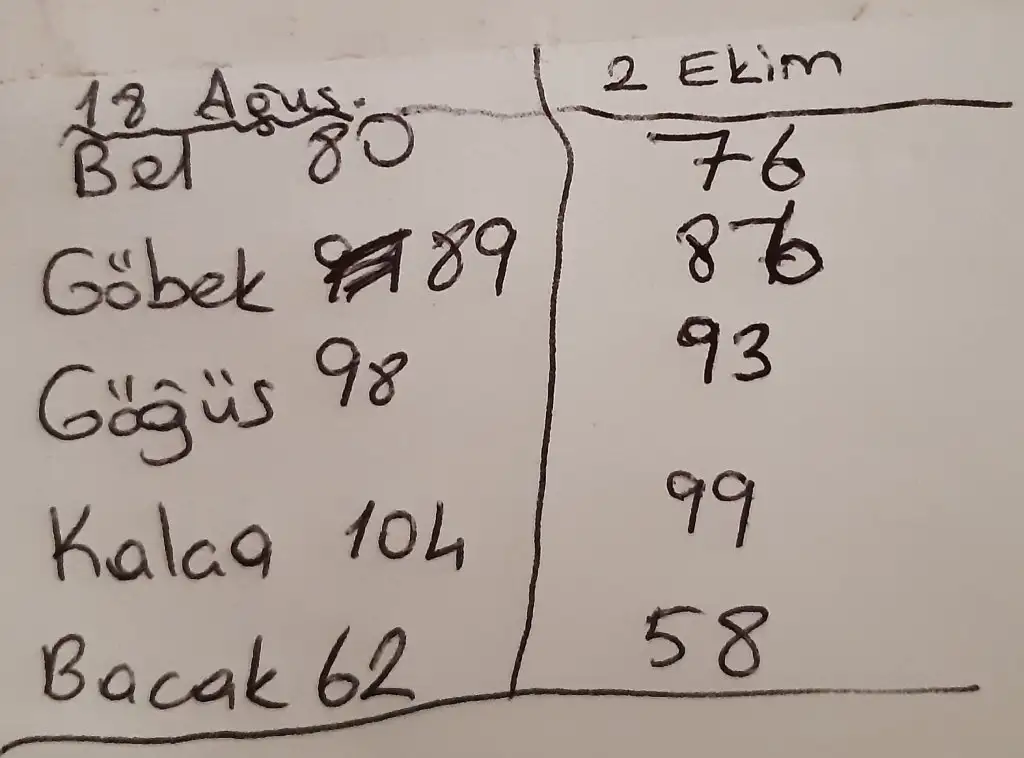 18 Ağus. 2 Ekim
Bel 80 76
Göbek 89 86
Göğüs 98 93
Kalaa 104 99
Bacak 62 58